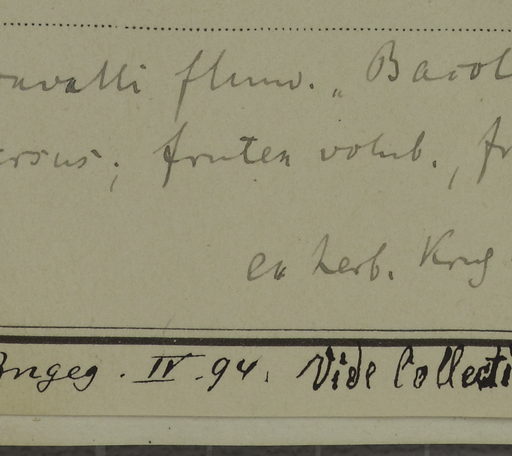 flum. "Bacol
ersus; frutex volub., fr
ex herb. Krug
IV. 94. Vide Collecti